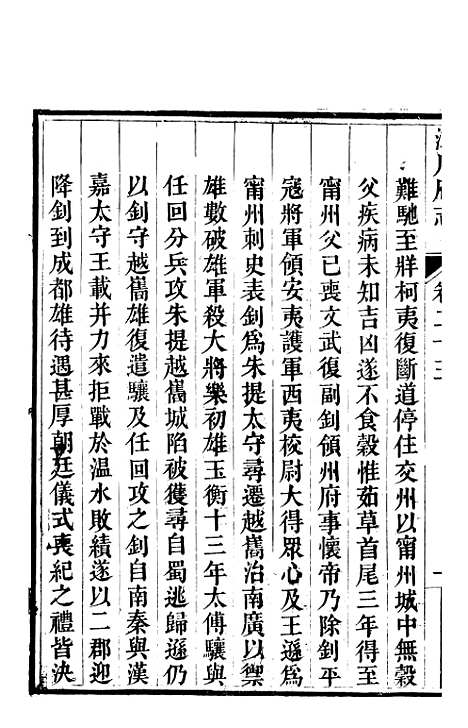 卷二十三
難馳至牂柯夷復斷道停住交州以甯州城中無穀
父疾病未知吉凶遂不食穀惟茹草首尾三年得至
甯州父已喪文武復副釗領州府事懷帝乃除釗平
寇將軍領安夷護軍西夷校尉大得眾心及王遜爲
甯州刺史表釗爲朱提太守尋遷越嶲治南廣以禦
雄數破雄軍殺大將樂初雄玉衡十三年太傅驤與
任回分兵攻朱提越嶲城陷被獲尋自蜀逃歸遜仍
以釗守越嶲雄復遣驤及任回攻之釗自南秦與漢
嘉太守王載并力來拒戰於温水敗績遂以二郡迎
降釗到成都雄待遇甚厚朝廷儀式喪紀之禮皆決